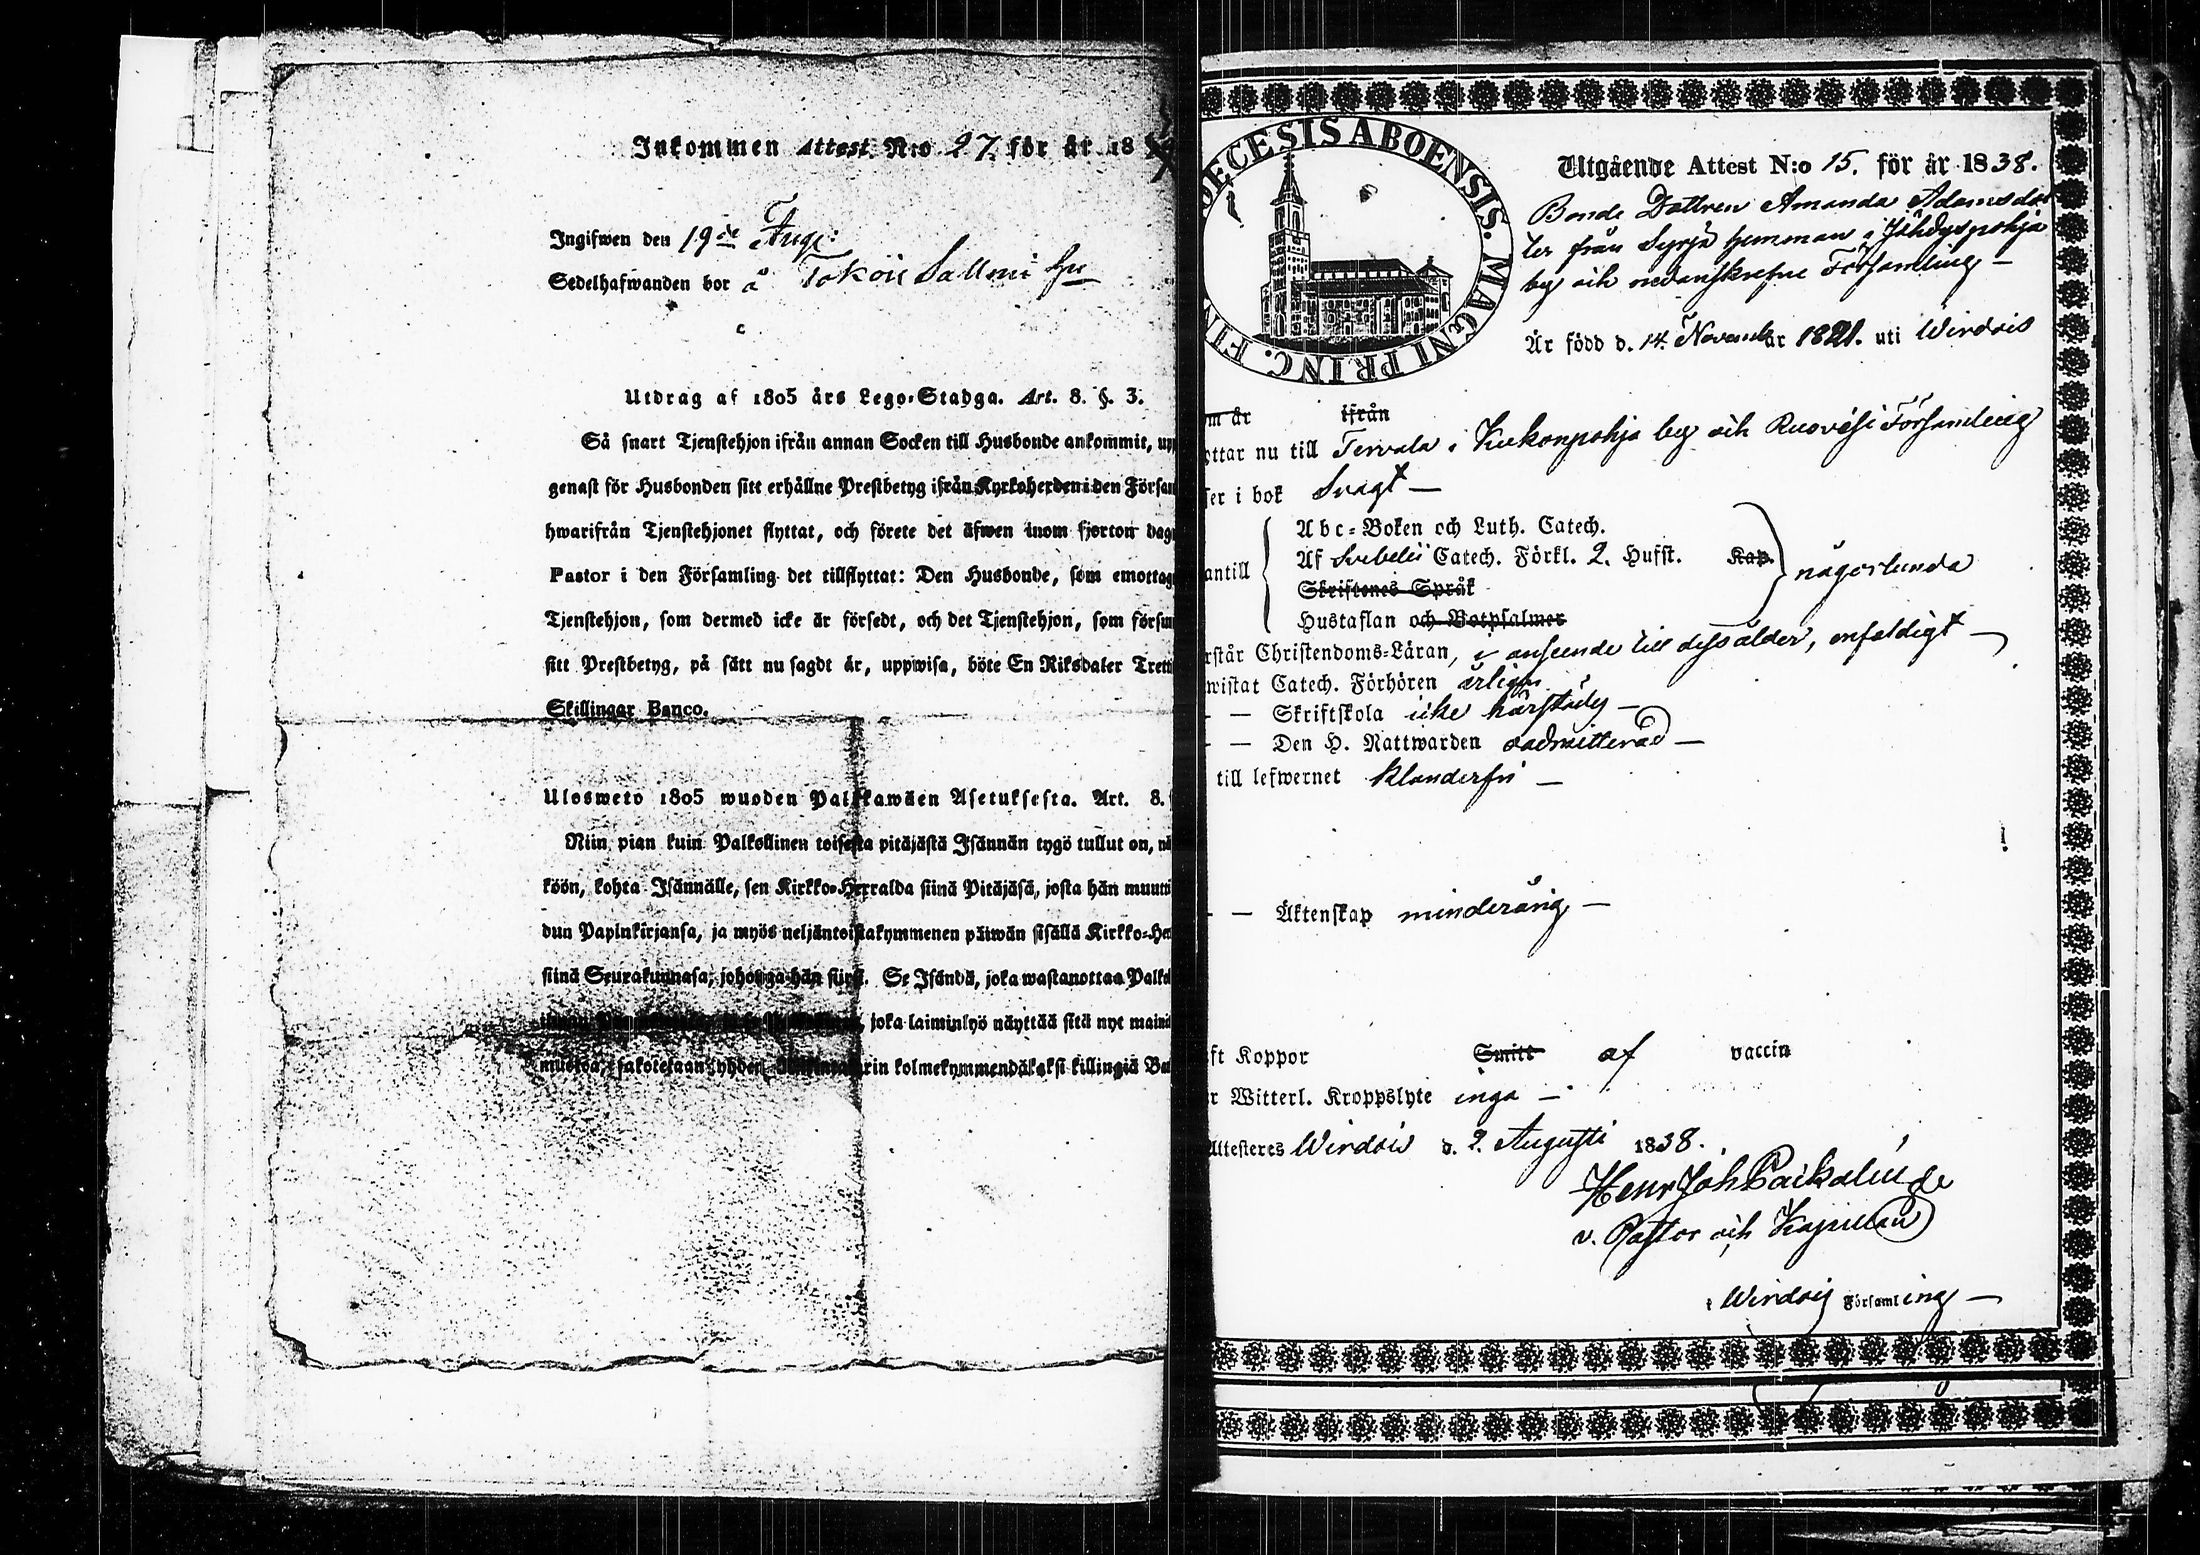 Inkommen Attest N:o 27. för år 18
Ingifwen den 19de Aug:
Sedelhafwanden bor å
Utdrag af 1805 års Lego-Stadga. Art. 8. §. 3.
Så snart Tjenstehjon ifrån annan Socken till Husbonde ankommit, upp
genast för Husbonden sitt erhållne Prestbetyg ifrån Kyrkoherden i den Försam
hwarifrån Tjenstehjonet flyttat, och förete det äfwen inom fjorton dag
Pastor i den Församling det tillflyttat: Den Husbonde, som emottag
Tjenstehjon, som dermed icke är försedt, och det Tjenstehjon, som försum
sitt Prestbetyg, på sätt nu sagdt är, uppwisa, böte En Riksdaler Tretti
Skillingar Banco.
Ulosweto 1805 wuoden Palkkawäen Asetuksesta. Art. 8.
Niin pian kuin Palkollinen toisesta pitäjästä Isännän tygö tullut on, nä
köön, kohta Isännälle, sen Kirkko-Herralda siinä Pitäjäsä, josta hän muutti
dun Papinkirjansa, ja myös neljäntoistakymmenen päiwän sisällä Kirkko-Her
siinä Seurakunnasa, johonga hän siirsi. Se Isändä, joka wastanottaa Palko
joka laiminlyö näyttää sitä nyt maini
muotoa, sakotetaan yhden kolmekymmendäkaksi killingiä Ban
DECESIS ABOENSIS. MAGNI PRINC. FIN
Utgående Attest N:o 15. för år 1838.
Bonde Dottren Amanda Adamsdot
ter från Syrjä hemman i Jähdyspohja
by och nedanskrefne Församling —
Är född d. 14. Novemb år 1821. uti Wirdois
om år ifrån
ottar nu till Terwala i Kukonpohja by och Ruovesi Församling
ser i bok Svagt —
Abc-Boken och Luth. Catech.
antill Af Svebelii Catech. Förkl. 2. Hufst. Kap. någorlunda
Skriftenes Språk
Hustaflan och Botpsalmer
rstår Christendoms-Läran, i anseende till dess ålder, enfaldigt —
wistat Catech. Förhören årligen
— — Skriftskola icke härstädes —
— — Den H. Nattwarden oadmitterad —
till lefwernet klanderfri —
— — Äktenskap minderårig —
ft Koppor Smitt af vaccin
r Witterl. Kroppslyte inga —
Attesteras Wirdois d. 2. Augusti 1838.
Henr Joh
v. Pastor och Kapellan
i Wirdois Församling —